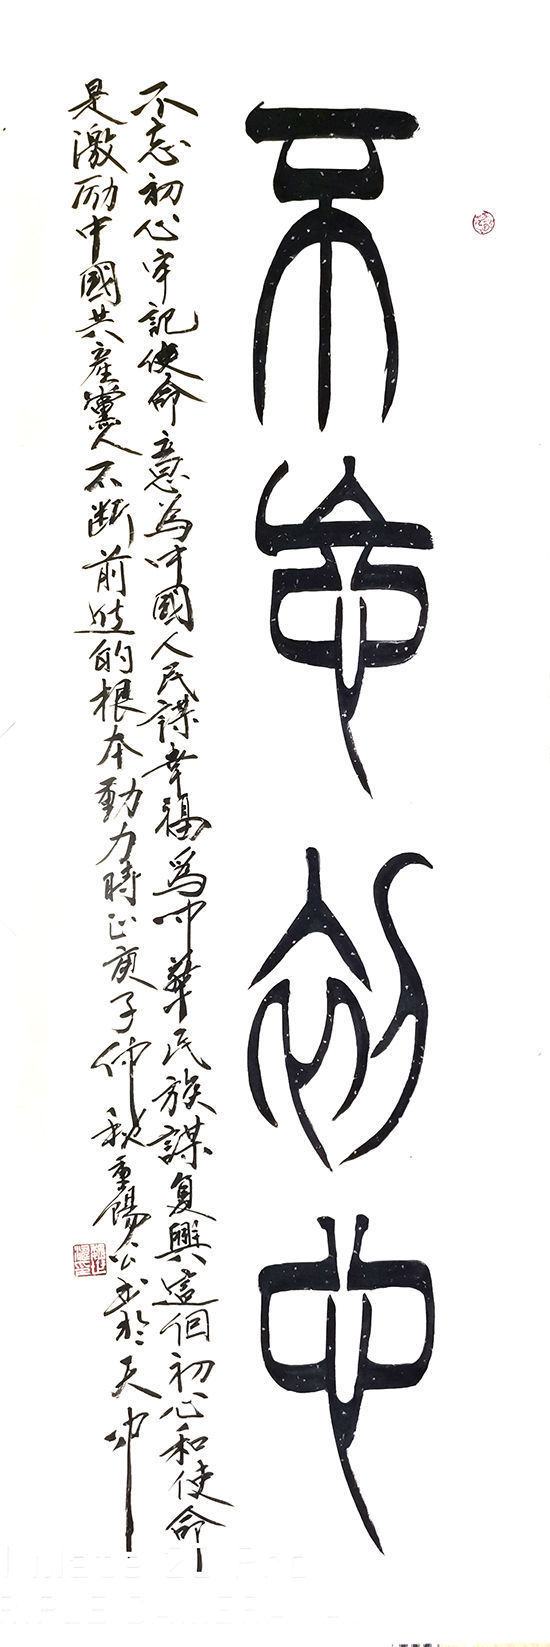 不忘初心
不忘初心牢記使命意為中國人民謀幸福爲中華民族謀复興這個初心和使命
是激励中國共產黨人不断前進的根本動力時正庚子仲秋重陽公書於天中
Mate 20 Pro